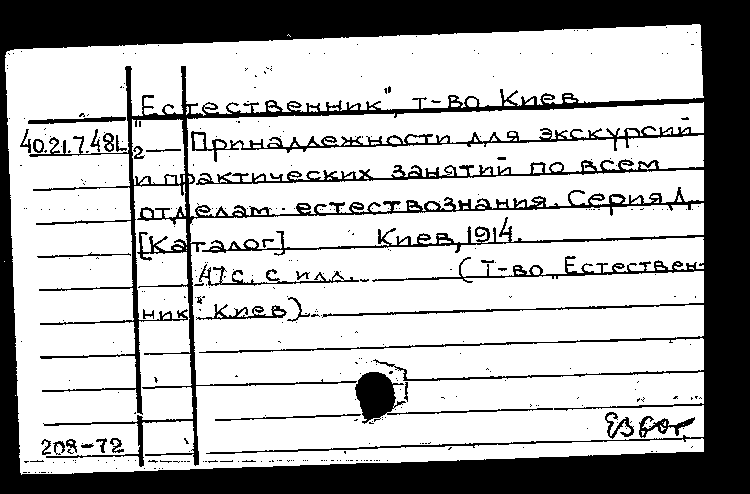 „Естественник", т-во. Киев
40.21.7.481 Принадлежности для экскурсий
2
и практических занятий по всем
отделам естествознания. Серия Д.
[Каталог] Киев, 1914.
47с. с илл. (Т-во „Естествен-
ник" Киев)
208-72